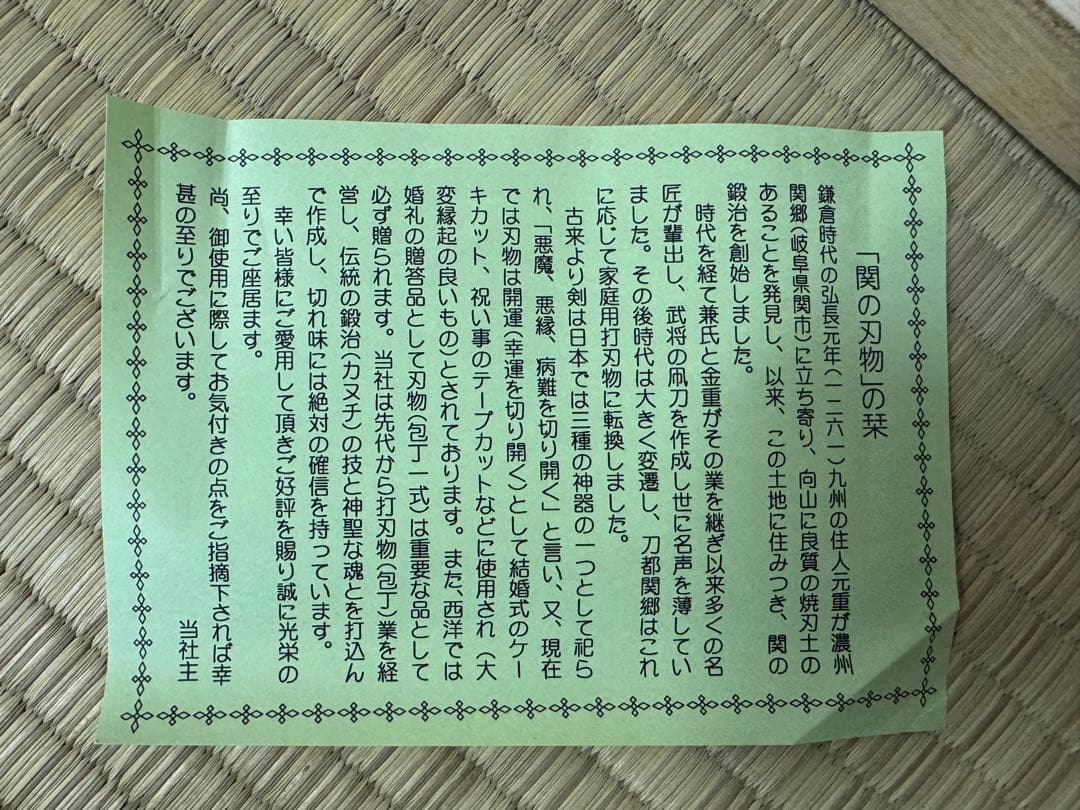 「関の刃物」の栞
鎌倉時代の弘長元年(一二六一)九州の住人元重が濃州
関郷(岐阜県関市)に立ち寄り、向山に良質の焼刃土の
あることを発見し、以来、この土地に住みつき、関の
鍛冶を創始しました。
時代を経て兼氏と金重がその業を継ぎ以来多くの名
匠が輩出し、武将の凧刀を作成し世に名声を薄してい
ました。その後時代は大きく変遷し、刀都関郷はこれ
に応じて家庭用打刃物に転換しました。
古来より剣は日本では三種の神器の一つとして祀ら
れ、「悪魔、悪縁、病難を切り開く」と言い、又、現在
では刃物は開運(幸運を切り開く)として結婚式のケー
キカット、祝い事のテープカットなどに使用され(大
変縁起の良いもの)とされております。また、西洋では
婚礼の贈答品として刃物(包丁一式)は重要な品として
必ず贈られます。当社は先代から打刃物(包丁)業を経
営し、伝統の鍛治(カヌチ)の技と神聖な魂とを打込ん
で作成し、切れ味には絶対の確信を持っています。
幸い皆様にご愛用して頂きご好評を賜り誠に光栄の
至りでご座居ます。
尚、御使用に際してお気付きの点をご指摘下されば幸
甚の至りでございます。
当社主